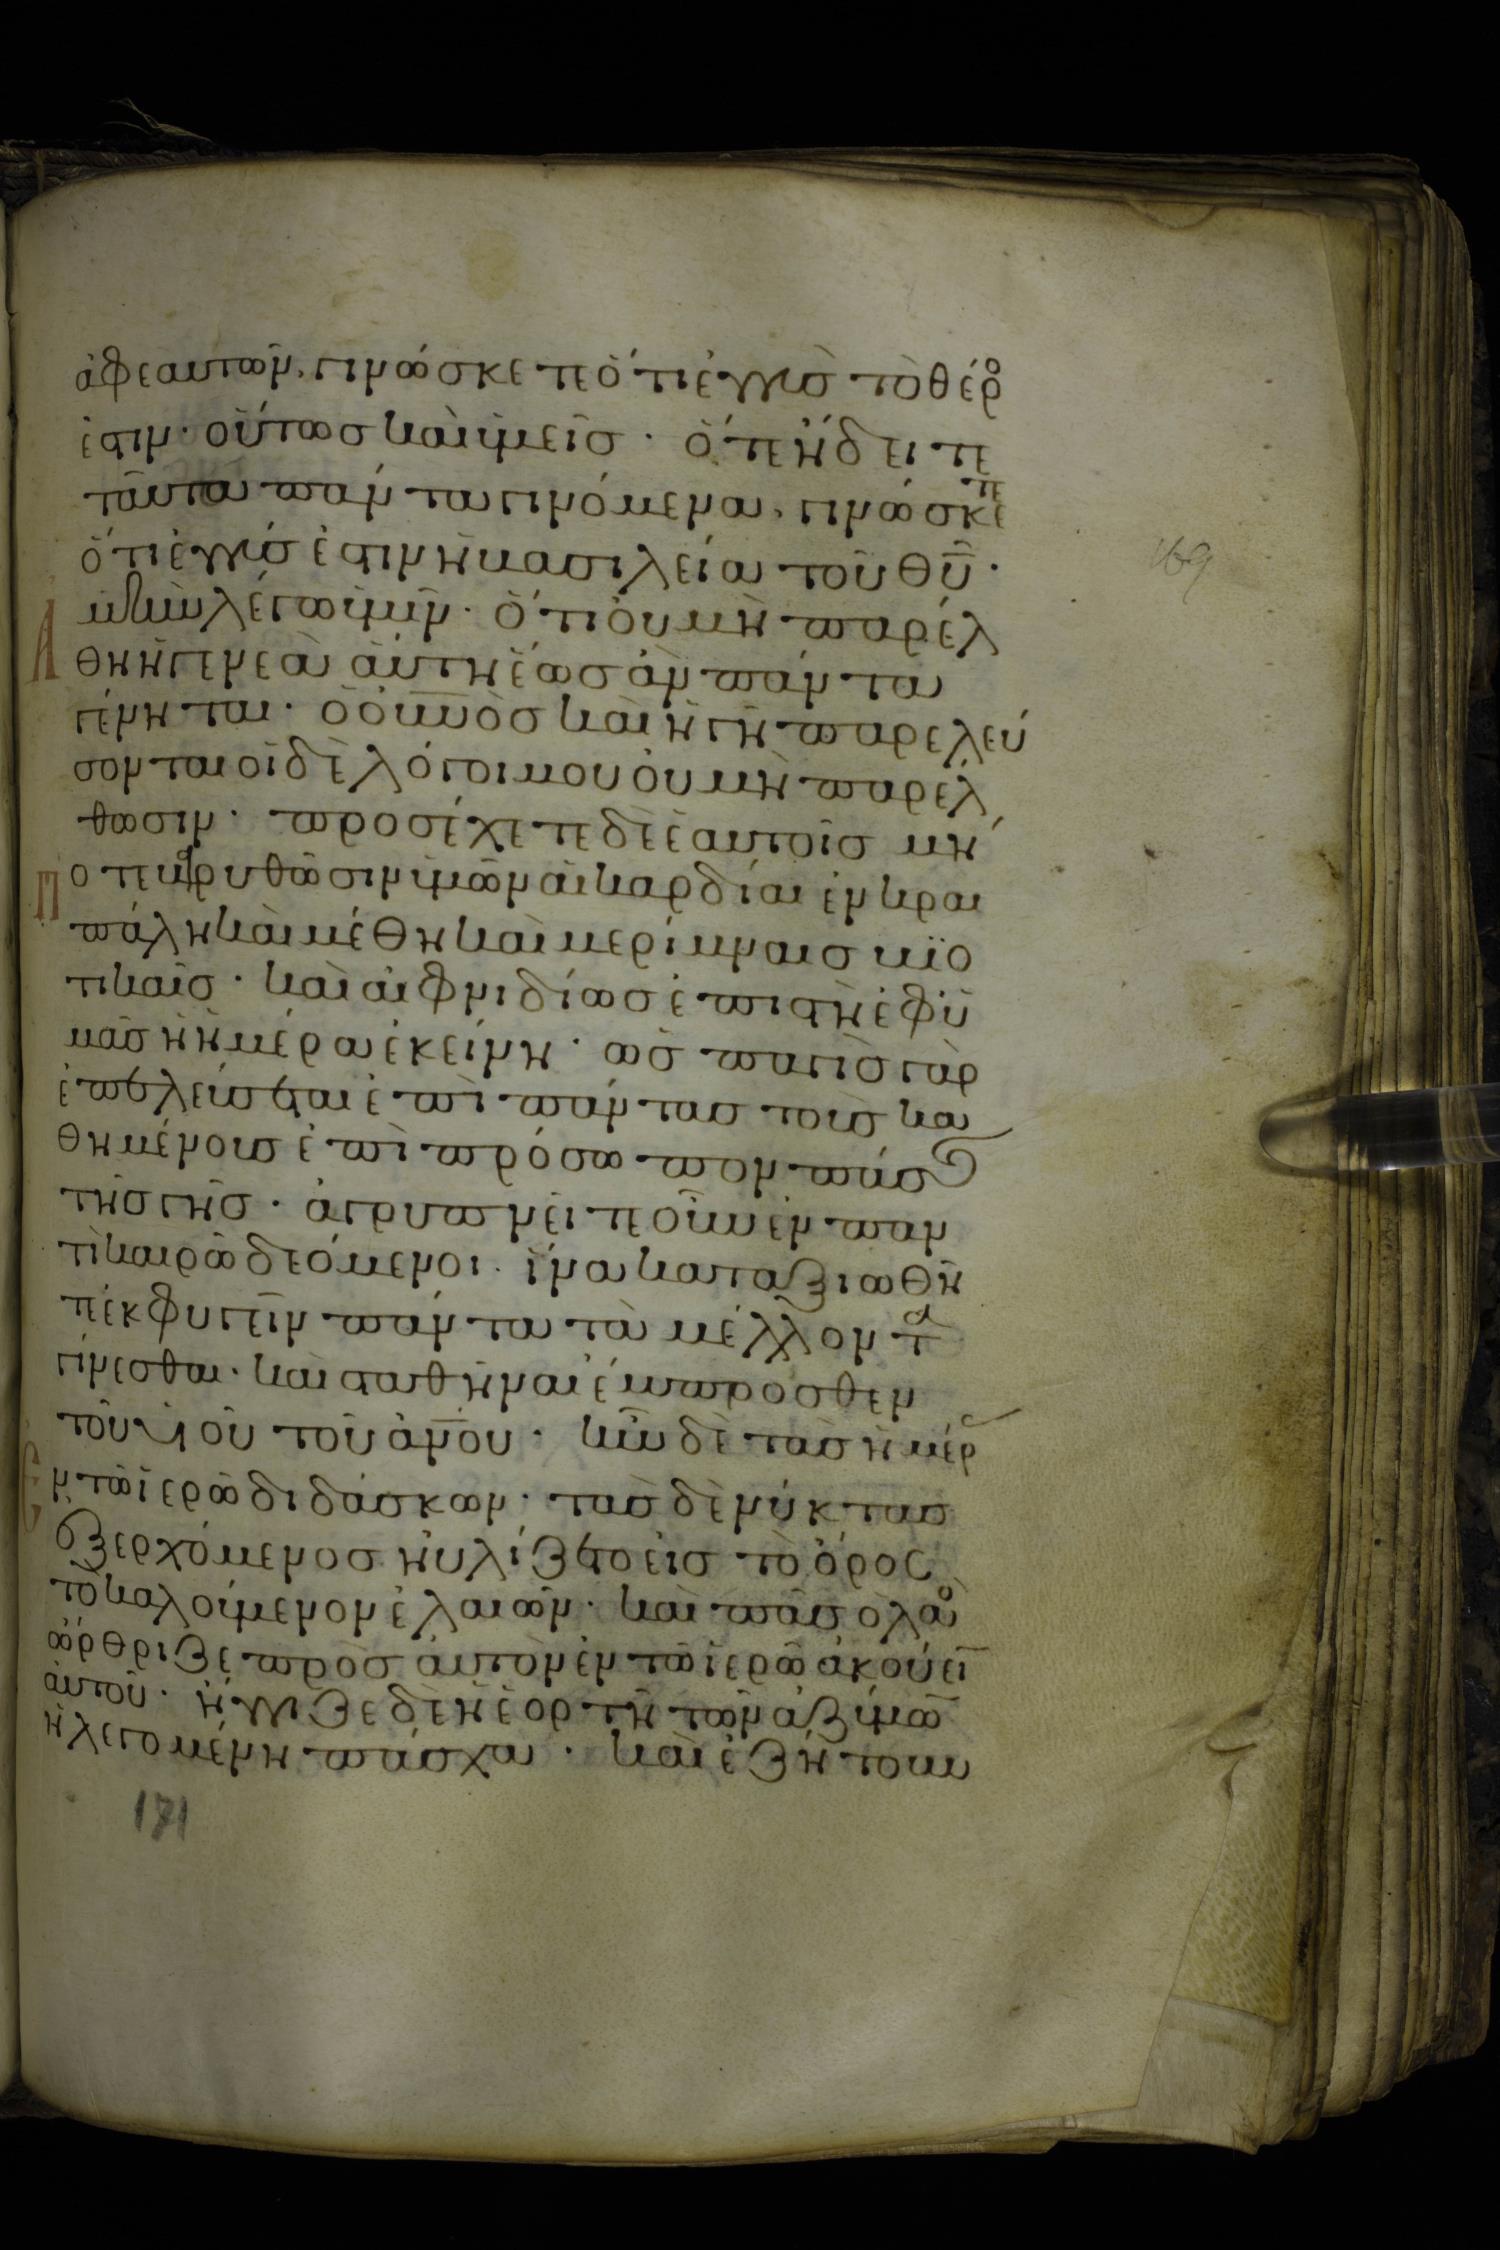 ἀφεαυτῶν, γινώσκετε ὅτι ἐγγὺς τὸ θέρο
ἐστιν· οὕτως καὶ ὑμεῖς· ὅτε ἴδειτε
ταῦτα πάντα γινόμενα, γινώσκετε
ὅτι ἐγγύς ἐστιν ἡ βασιλεία τοῦ θυ̅·
ἀμὴν λέγω ὑμῖν· ὅτι οὐ μὴ παρέλ
θη ἡ γενεὰ αὕτη ἕως ἂν πάντα
γένηται· ὁ οὐνος καὶ ἡ γῆ παρελεύ
σονται οἱ δὲ λόγοι μου οὐ μὴ παρέλ
θωσιν· προσέχετε δὲ ἑαυτοῖς μή
ποτε βαρυθῶσιν ὑμῶν αἱ καρδίαι ἐν κραι
πάλη καὶ μέθη καὶ μερίμναις βιο
τικαῖς· καὶ αἰφνιδίως ἐπιστῆ ἐφ ὑ
μᾶς ἡ ἡμέρα ἐκείνη· ὡς παγὶς γὰρ
ἐπελεύσεται ἐπὶ πάντας τοὺς κα
θημένους ἐπὶ πρόσωπον πάσης
τῆς γῆς· ἀγρυπνεῖτε οὖν ἐν παν
τὶ καιρῶ δεόμενοι· ἵνα καταξιωθῆ
τε ἐκφυγεῖν πάντα τὰ μέλλοντα
γίνεσθαι· καὶ σταθῆναι ἔμπροσθεν
τοῦ υἱοῦ τοῦ ἀνου· ἦν δὲ τὰς ἡμέρ
ἐν τῶ ἱερῶ διδάσκων· τὰς δὲ νύκτας
ἐξερχόμενος ηὐλίζετο εἰς τὸ ὄρος
τὸ καλούμενον ἐλαιῶν· καὶ πᾶς ὁ λαὸ
ὤρθριζε πρὸς αὐτὸν ἐν τῶ ἱερῶ ἀκούει̅
αὐτοῦ· ἤγγιζε δὲ ἡ ἑορτὴ τῶν ἀζύμω̅
ἡ λεγομένη πάσχα· καὶ ἐζήτουν
169
171